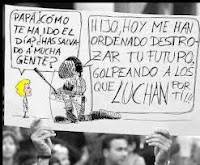 PAPÁ ¿CÓMO
TE HA IDO EL
DÍA? ¿HAS SALVA-
DO A MUCHA
GENTE?
HIJO, HOY ME HAN
ORDENADO DESTRO-
ZAR TU FUTURO,
GOLPEANDO A LOS
QUE LUCHAN
POR
TI!!